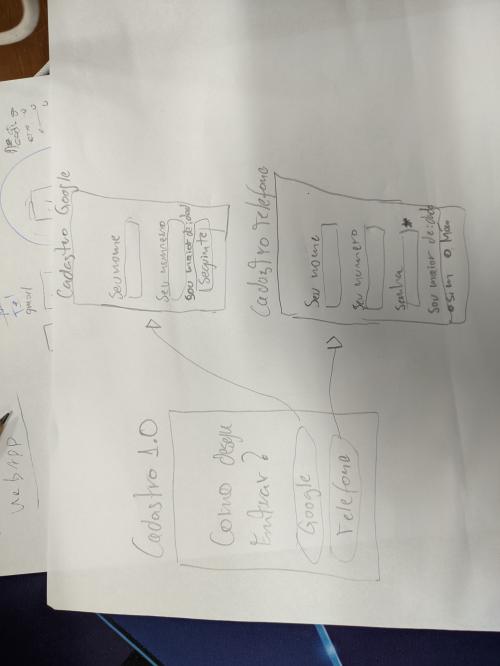 Cadastro 1.0
Como deseja
Entrar?
Google
Telefone
Cadastro Google
Seu nome
Seu número
sou maior de idade
Seguinte
Cadastro Telefone
Seu nome
seu número
senha *
sou maior de idade
o sim o não
webApp
gmail